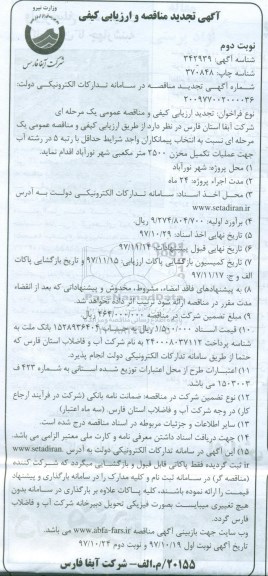 وزارت نیرو
شرکت آبفا فارس
آگهی تجدید مناقصه و ارزیابی کیفی
نوبت دوم
شناسه آگهی: ۳۴۲۹۳۹
شناسه چاپ: ۳۷۰۸۴۸
شماره آگهی تجدید مناقصه در سامانه تدارکات الکترونیکی دولت:
۲۰۰۹۷۷۰۲۰۰۰۰۳۶
نوع فراخوان: تجدید ارزیابی کیفی و مناقصه عمومی یک مرحله ای
شرکت آبفا استان فارس در نظر دارد از طریق ارزیابی کیفی و مناقصه عمومی یک
مرحله ای نسبت به انتخاب پیمانکاران واجد شرایط حداقل با رتبه ۵ در رشته آب
جهت عملیات تکمیل مخزن ۲۵۰۰ متر مکعبی شهر نورآباد اقدام نماید.
۱) محل پروژه: شهر نورآباد
۲) مدت اجراء پروژه: ۲۴ ماه
۳) محل اخذ اسناد: سامانه تدارکات الکترونیکی دولت به آدرس
www.setadiran.ir
۴) برآورد اولیه: ۹/۲۷۴/۸۰۴/۷۰۰ ریال
۵) تاریخ نهایی اخذ اسناد: ۹۷/۱۰/۲۹
۶) تاریخ نهایی قبول پیشنهادات: ۹۷/۱۱/۱۴
۷) تاریخ کمیسیون بازگشایی پاکات ارزیابی ۹۷/۱۱/۱۵ و تاریخ بازگشایی پاکات
الف و ج: ۹۷/۱۱/۱۷
۸) به پیشنهادهای فاقد امضاء، مشروط، مخدوش و پیشنهاداتی که بعد از انقضاء
مدت مقرر در مناقصه ارائه شود ترتیب اثر داده نخواهد شد.
۹) مبلغ تضمین شرکت در مناقصه: ۴۶۴/۰۰۰/۰۰۰ ریال
۱۰) قیمت اسناد ۱/۵۰۰/۰۰۰ ریال به حساب ۱۵۲۸۹۳۶۴۰۴ بانک ملت به
شناسه پرداخت ۲۲۰۰۰۸۰۳۷۱۱۲ به نام شرکت آب و فاضلاب استان فارس که
حتما از طریق سامانه تدارکات الکترونیکی دولت انجام پذیرد.
۱۱) اعتبارات طرح از محل اعتبارات توزیع شده استانی به شماره ۴۲۳ ف
۱۵۰۳۰۰۳ می باشد.
۱۲) نوع تضمین شرکت در مناقصه: ضمانت نامه بانکی (شرکت در فرآیند ارجاع
کار) در وجه شرکت آب و فاضلاب استان فارس. (سه ماه اعتبار)
۱۳) سایر اطلاعات و جزئیات مربوطه در اسناد مناقصه درج شده است.
۱۴) جهت دریافت اسناد داشتن معرفی نامه و کارت ملی معتبر الزامی می باشد.
۱۵) این آگهی در سامانه تدارکات الکترونیکی دولت به آدرس www.setadiran.
ir ثبت گردیده فقط پاکاتی قابل قبول و بازگشایی میگردد که شرکت کننده
(مناقصه گر) در سامانه ثبت نام و کلیه مدارک را در سامانه بارگذاری و پیشنهاد
قیمت را ارائه نموده باشند، کلیه پاکات علاوه بر بارگذاری در سامانه بدون
هیچ تغییری میبایست بصورت فیزیکی تحویل دبیرخانه شرکت آب و فاضلاب
فارس گردد.
وب سایت جهت بازبینی آگهی مناقصه www.abfa-fars.ir می باشد.
تاریخ آگهی نوبت اول ۹۷/۱۰/۱۹ و نوبت دوم ۹۷/۱۰/۲۴
۲۰۱۵۵/م.الف- شرکت آبفا فارس